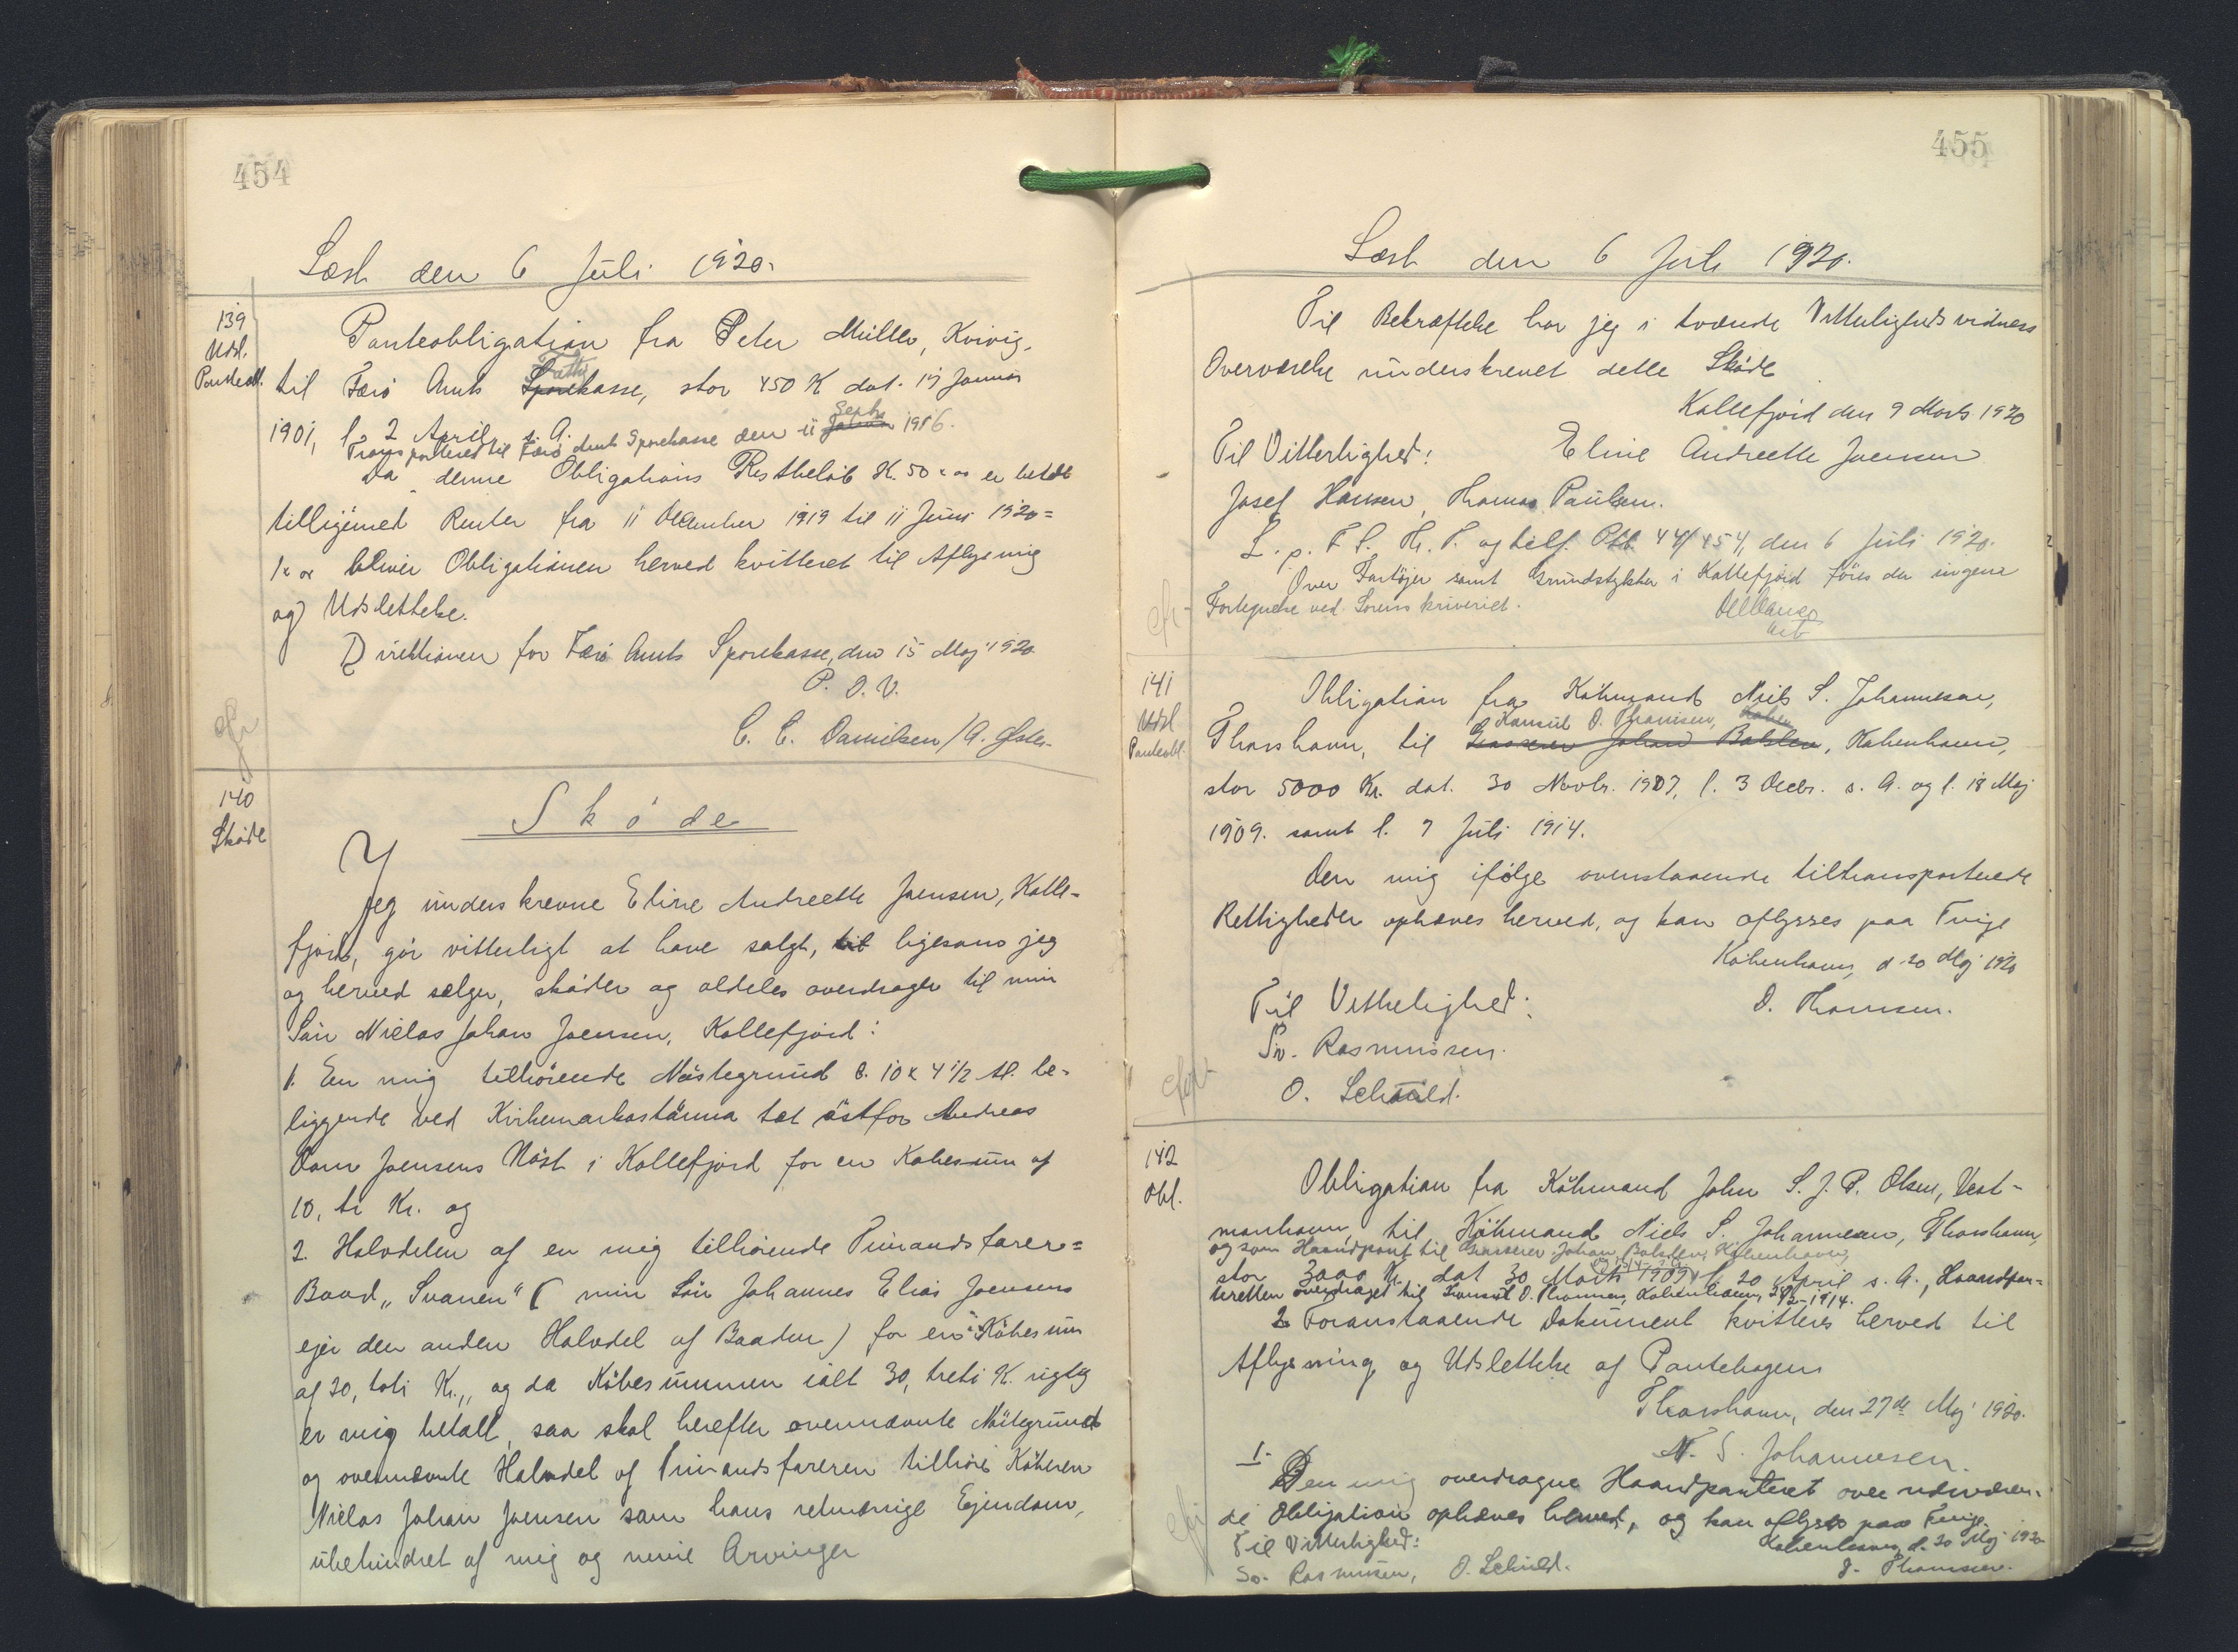 454
Læst den 6 Juli 1920.
139
Udsl.
Panteobl.
Panteobligation fra Peter Müller, Kvivig,
til Færø Amts Sparekasse, stor 450 K dat. 19 Januar
Septbr
1901, l. 2 April s. A.
Transporteret til Færø Amts Sparekasse den 11 1916.
Da denne Obligations Restbeløb K. 50 " " er betalt
tilligemed Renter fra 11 December 1919 til 11 Juni 1920 =
1 " " bliver Obligationen herved kvitteret til Aflysning
og Udslettelse.
Direktionen for Færø Amts Sparekasse, den 15 Maj 1920
P. D. V.
C. C. Danielsen /
140
Skøde
Skøde
Jeg underskrevne Eline Andreette Joensen, Kolle-
fjord, gör vitterligt at have solgt, til ligesom jeg
og herved sælger, skøder og aldeles overdrager til min
Sön Niclas Johan Joensen, Kollefjord:
1. En mig tilhørende Nöstegrund 10 x 4 1/2 Al. be-
liggende ved Kirkemarkastanna tæt östfor Andreas
Dam Joensens Nöst i Kollefjord for en Købesum af
10, ti Kr. og
2. Halvdelen af en mig tilhørende Firmandsfarer=
Baad „Svanen“ ( min Sön Johannes Elias Joensens
ejer den anden Halvdel af Baaden) for en Købesum
af 20, toti Kr., og da Købesummen ialt 30, treti K. rigtig
er mig betalt, saa skal herefter ovennævnte Nöstegrund
og ovennævnte Halvdel af Firmandsfareren tilhøre Køberen
Niclas Johan Joensen som hans retmæssige Ejendom,
ubehindret af mig og mine Arvinger
455
Læst den 6 Juli 1920.
Til Bekræftelse har jeg i tvænde Vitterlighedsvidners
Overværelse underskrevet dette Skøde
Kollefjord den 9 Marts 1920
Til Vitterlighed: Eline Andreette Joensen
Josef Hansen, Thomas Paulsen.
L. p. F. S. Th. T. og tilf. Ptb. 44/454, den 6 Juli 1920.
Over Fartøjer samt Grundstykker i Kollefjord føres der ingen
Fortegnelse ved Sorenskriveriet.
141
Udsl
Panteobl.
Obligation fra Købmand Niels S. Johannesen,
Konsul D. Thomsen,
Thorshavn, til Grosserer Johan Balslev, København,
stor 5000 Kr. dat. 30 Novbr. 1907, l. 3 Decbr. s. A. og l. 18 Maj
1909. samt l. 7 Juli 1914.
Den mig ifølge ovenstaaende tiltransporterede
Rettigheder ophæves herved, og kan aflyses paa Tinge
København, d 20 Maj 1920
Til Vitterlighed: D. Thomsen.
Sv. Rasmussen.
O. Schiold.
142
Obl.
Obligation fra Købmand John S. J. P. Olsen, Vest-
manhavn, til Købmand Niels S. Johannesen, Thorshavn,
og som Haandpant til Grosserer Johan Balslev, København,
stor 3000 Kr. dat 30 Marts 1909 l. 20 April s. A., Haandpan=
teretten overdraget til Konsul D. Thomsen, København, 1914.
2 Foranstaaende Dokument kvitteres herved til
Aflysning og Udslettelse af Pantebogen
Thorshavn, den 27de Maj 1920.
N. S. Johannesen.
1.
Den mig overdragne Haandpanteret over nærværen-
de Obligation ophæves herved, og kan aflyses paa Tinge.
Til Vitterlighed: København, d. 20 Maj 1920
Sv. Rasmussen, O. Schiold. D. Thomsen.